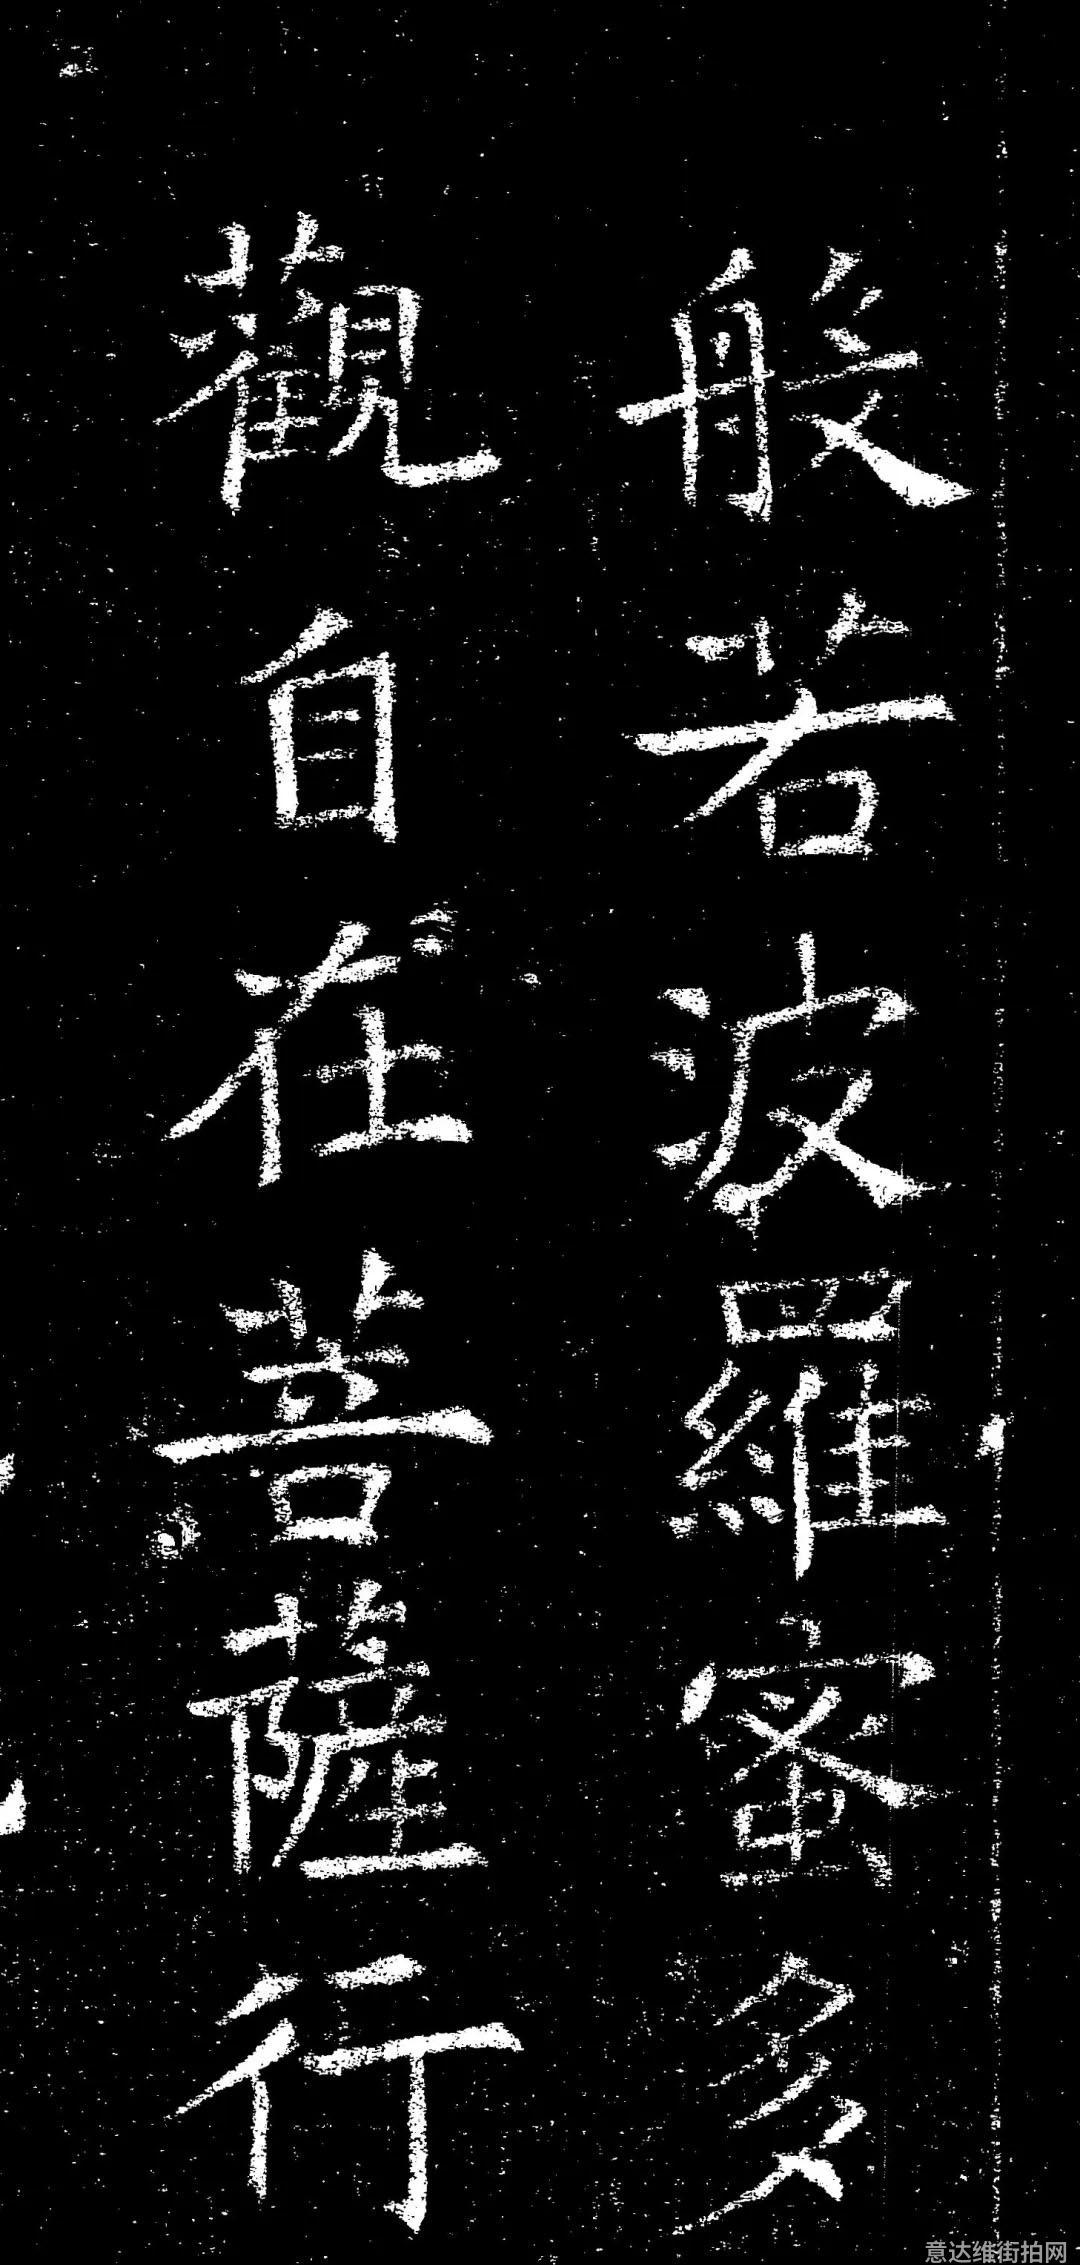 般若波羅蜜多
觀自在菩薩行
意达维街拍网